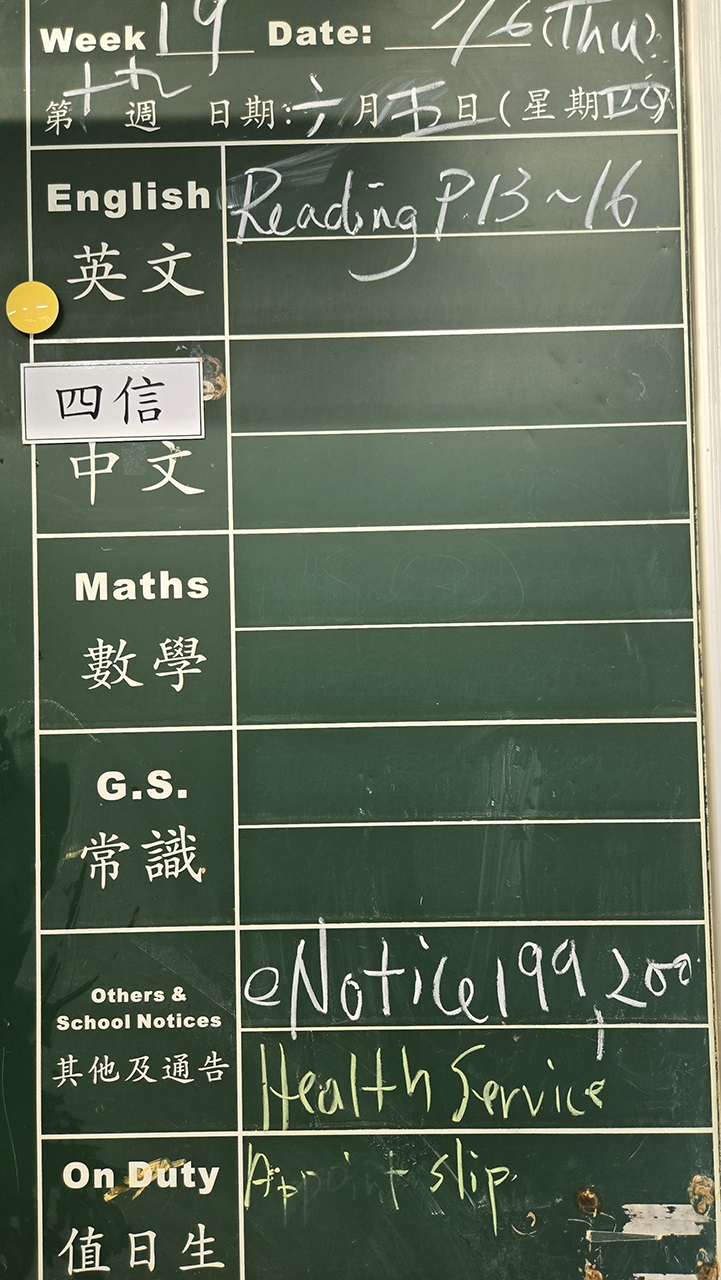 Week 19 Date: 5/6 (Thu)
第十九週 日期:六月五日(星期四)
English Reading P.13~16
英文
四信
中文
Maths
數學
G.S.
常識
Others & School Notices eNotice 199, 200
其他及通告 Health Service
On Duty Appoint slip
值日生